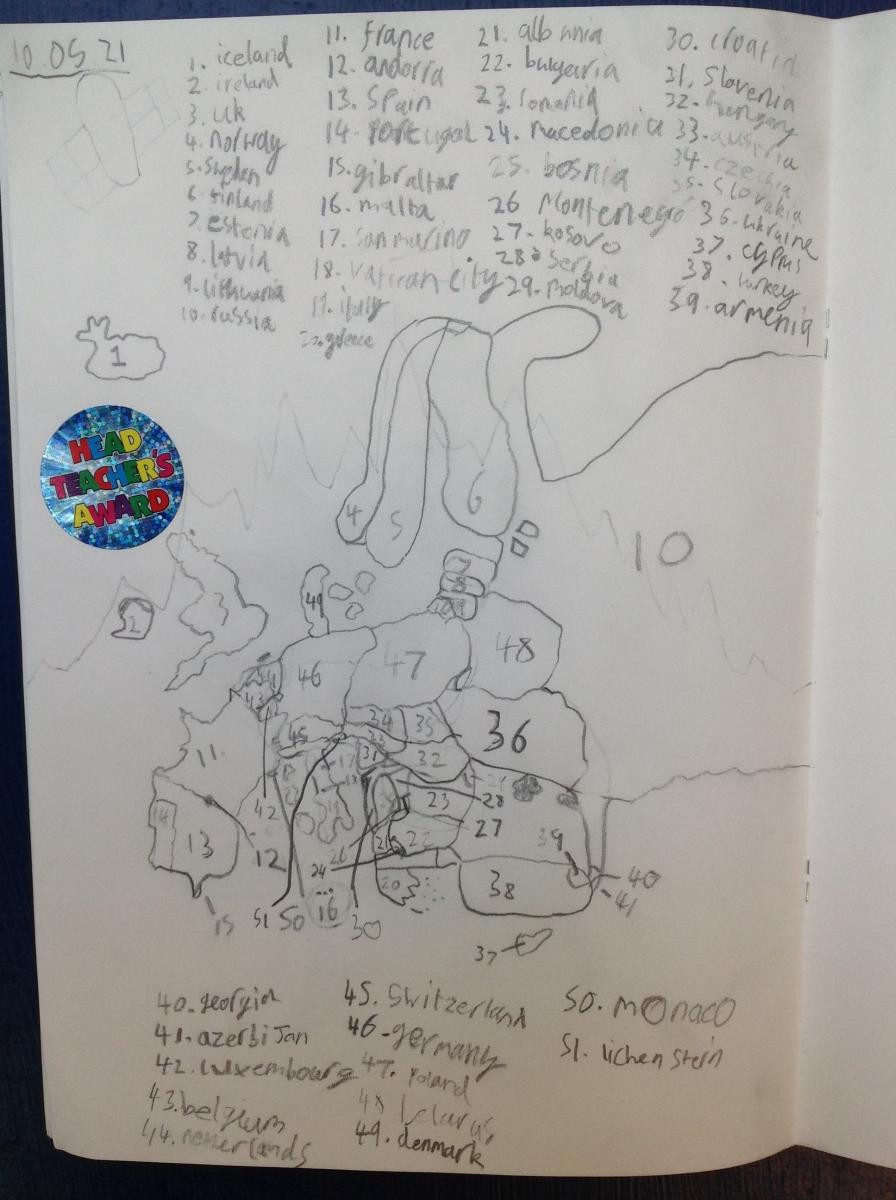 10.05 21
1. iceland
2. ireland
3. uk
4. norway
5. Sweden
6. finland
7. estonia
8. latvia
9. lithuania
10. russia
11. france
12. andorra
13. Spain
14. Portugal
15. gibraltar
16. malta
17. San marino
18. vatican city
19. italy
20. greece
21. albania
22. bulgaria
23. romania
24. macedonia
25. bosnia
26 Montenegro
27. kosovo
28. Serbia
29. Moldova
30. croatia
31. Slovenia
32. hungary
33. austria
34. czechia
35. Slovakia
36. ukraine
37. cyprus
38. turkey
39. armenia
1
HEAD
TEACHER'S
AWARD
4
5
6
10
7
8
9
2
3
49
46
47
48
44
43
45
34
35
36
33
31
32
11
17
29
28
23
27
14
13
42
22
39
12
24
26
21
20
38
40
41
15
51
50
16
30
37
40. georgia
41. azerbiJan
42. Luxembourg
43. belgium
44. netherlands
45. Switzerland
46. germany
47. Poland
48 belarus
49. denmark
50. monaco
51. lichen stein